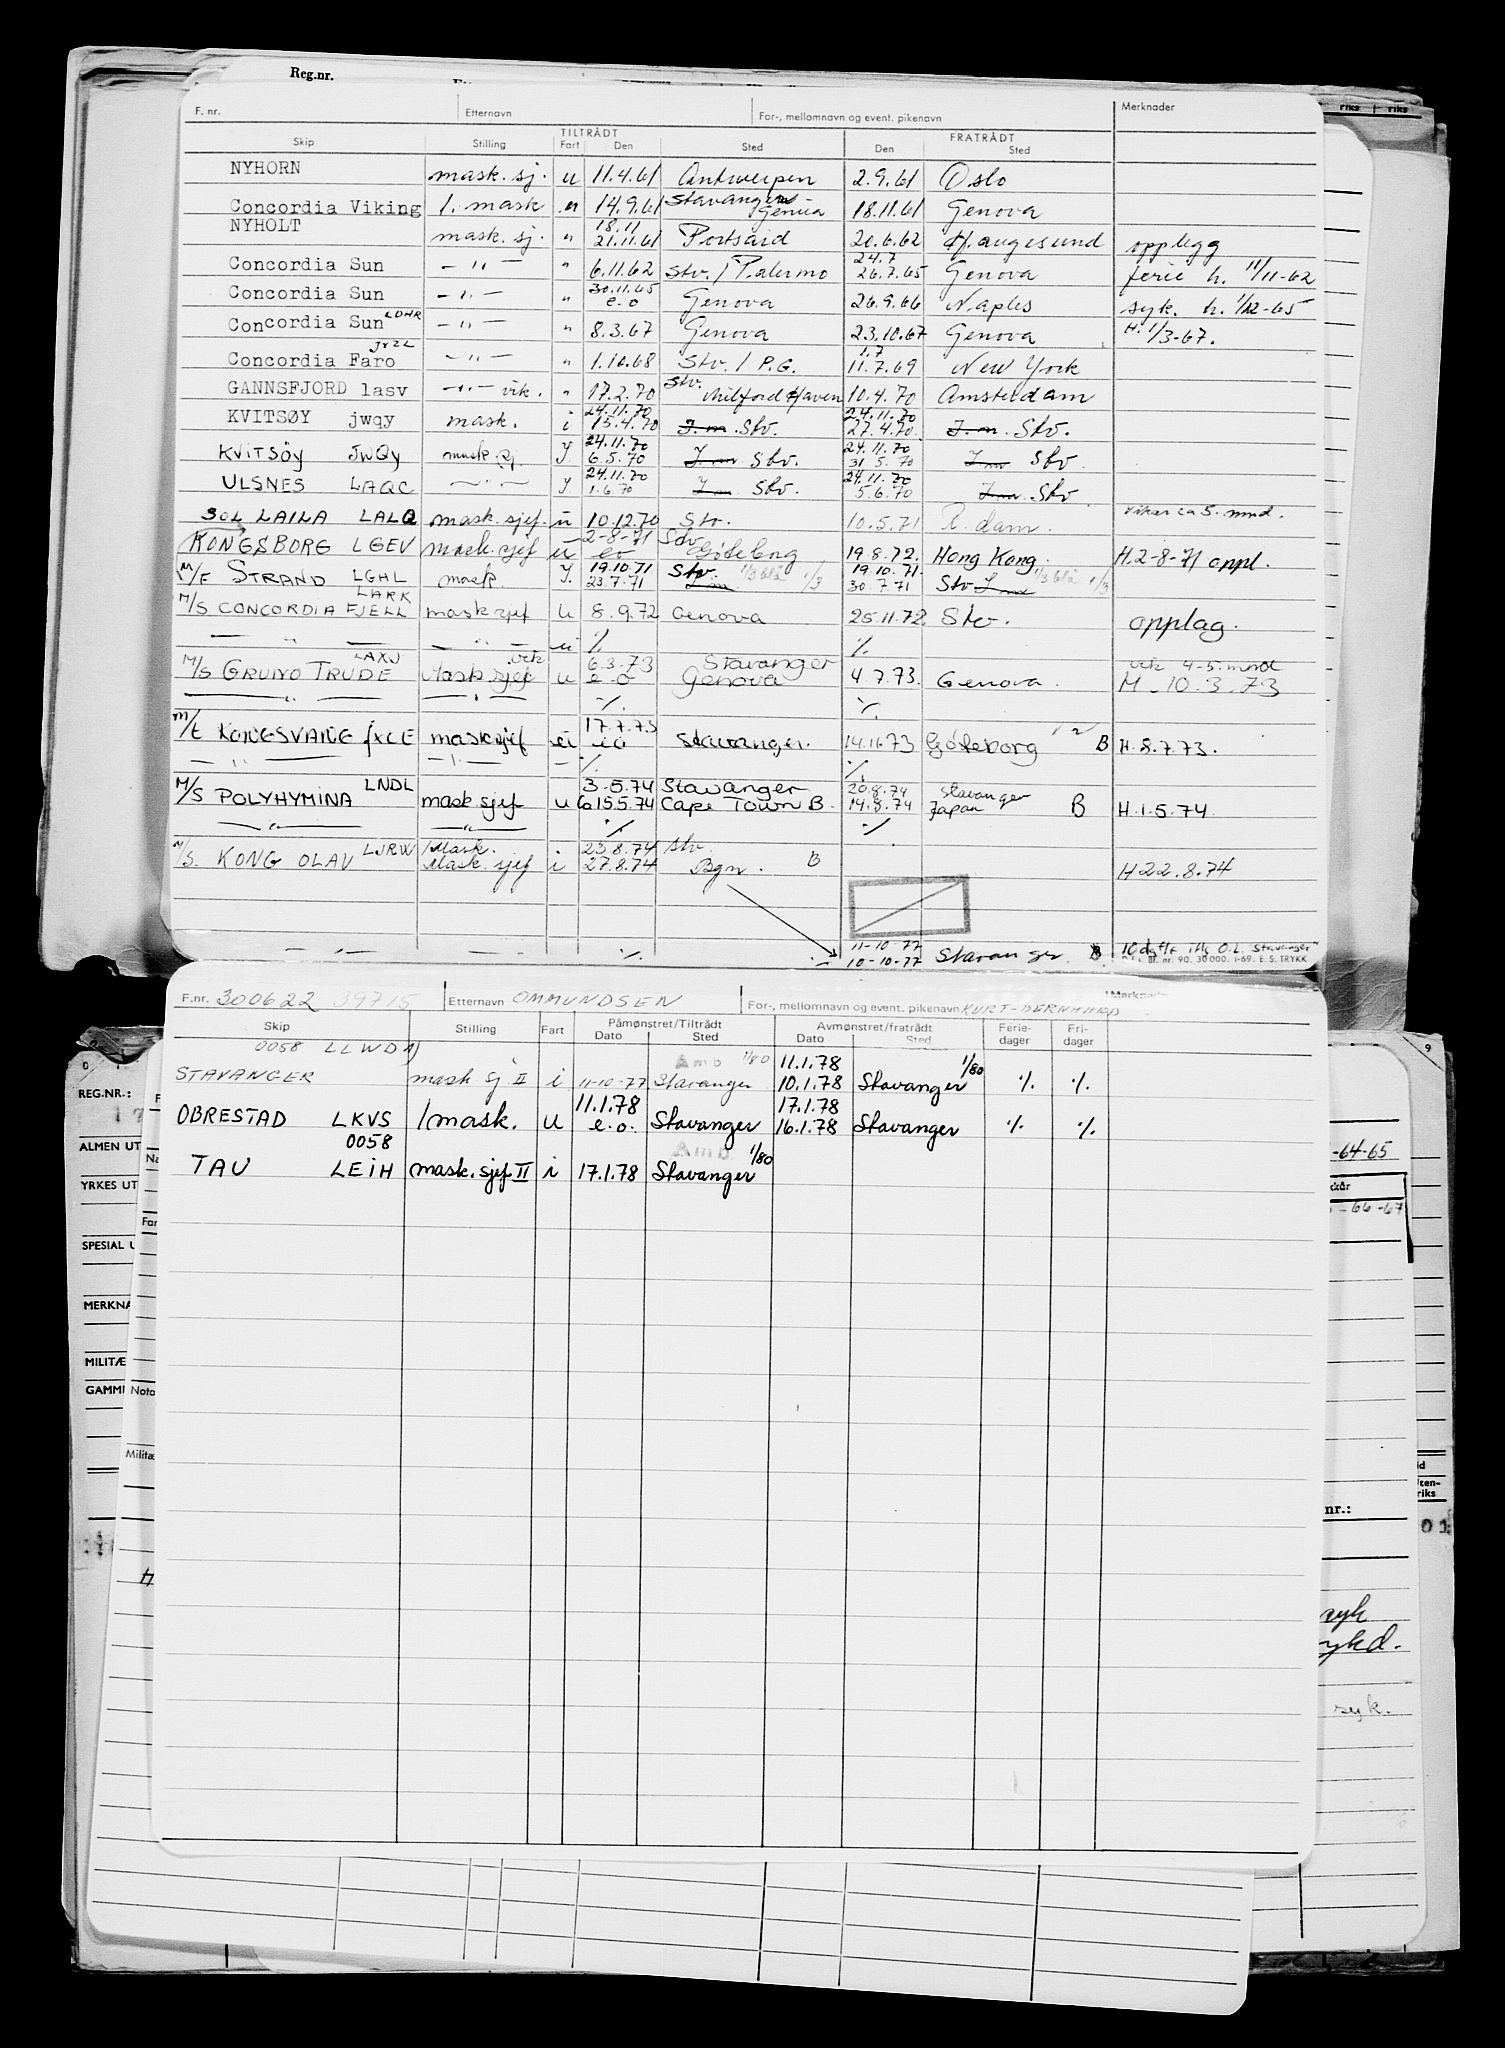 Reg.nr.
F. nr. Etternavn For-, mellomnavn og event. pikenavn Merknader
TILTRÅDT FRATRÅDT
Skip Stilling Fart Den Sted Den Sted
NYHORN mask. sj. u 11.4.61 Antwerpen 2.9.61 Oslo
Concordia Viking 1. mask u 14.9.61 Stavanger Genua 18.11.61 Genova
NYHOLT mask. sj. " 18.11 21.11.61 Portsaid 20.6.62 Haugesund opplegg
Concordia Sun - " - " 6.11.62 Stv. / Palermo 24.7 26.7.65 Genova ferie h. 11/11-62
Concordia Sun - " - " 30.11.65 e.o Genova 26.9.66 Naples syk. h. 1/12-65
Concordia Sun LDHR - " - " 8.3.67 Genova 23.10.67 Genova H. 1/3-67.
Concordia Faro jrzl - " - " 1.10.68 Stv. / P.G. 1.7 11.7.69 New York
GANNSFJORD lasv - " - vik. " 17.2.70 Stv. Milford Haven 10.4.70 Amsterdam
KVITSØY jwqy mask. i 24.11.70 15.4.70 J.m. Stv. 24.11.70 27.4.70 J.m. Stv.
KVITSÖY JWQY mask. sj. J 24.11.70 6.5.70 J.m Stv. 24.11.70 31.5.70 J.m Stv
ULSNES LAQC - " - J 24.11.70 1.6.70 J.m Stv. 24.11.70 5.6.70 J.m Stv
SOL LAILA LALQ mask. sjef. u 10.12.70 Stv. 10.5.71 R.dam. vikar ca 5. mnd.
KONGSBORG LGEV mask. sjef u 2-8-71 eo Stv Göteborg 19.8.72. Hong Kong. H.2-8-71 oppl.
M/F STRAND LGHL mask. J. 19.10.71 23.7.71 Stv. J.m 1/3 blå 1/3 19.10.71. 30.7.71 Stv J.m 1/3 blå 1/3
M/S CONCORDIA FJELL LARK mask sjef u 8.9.72 Genova 25.11.72 Stv. opplag.
- " - - " - u ·/. ·/.
M/S GRUNO TRUDE LAXJ Mask. sjef vik u 6.3.73 e.o Stavanger Genova 4 7.73. Genova. vik 4-5. mnd M. 10.3.73
- " - - " - ·/. ·/.
M/T KONGSVANG jxce mask sjef u 17.7.73 e.o Stavanger. 14.11.73 Göteborg B H. 8.7.73.
- " - - " - - ·/. ·/.
M/S POLYHYMINA LNDL mask sjef u 3-5.74 15.5.74 Stavanger Cape Town B. 20.8.74 14.8.74 Stavanger Japan B H.1.5.74.
- " - - " - ·/. ·/.
M/S. KONG OLAV LJRW 1 Mask. Mask. sjef i i 23.8.74 27.8.74 Stv. Bgn. B H 22.8.74
- " - - " - ·/. 11-10-77 10-10-77 Stavanger. B. 10 dg f/f iflg O.L. "Stavanger"
Bl. nr. 90. 30 000. 1-69. E. S. TRYKK
F.nr. 300622 39715 Etternavn OMMUNDSEN For-, mellomnavn og event. pikenavn KURT-BERNHARD
Skip Stilling Fart Påmønstret/Tiltrådt Dato Sted Avmønstret/fratrådt Dato Sted Ferie-dager Fri-dager
STAVANGER 0058 LLWD 1) mask sj II i 11-10-77 Amb 1/80 Stavanger 11.1.78 10.1.78 Stavanger 1/80 ·/. ·/.
OBRESTAD LKVS 1 mask. u 11.1.78 e.o. Stavanger 17.1.78 16.1.78 Stavanger ·/. ·/.
TAU 0058 LEIH mask. sjef II i 17.1.78 Amb 1/80 Stavanger
REG.NR.:
ALMEN UT
YRKES UT
SPECIAL U
MERKNA
MILITÆ
GAMM
Nota
Militæ
-64-65
-66-67
nr.:
01
syk
sykd.
syk.